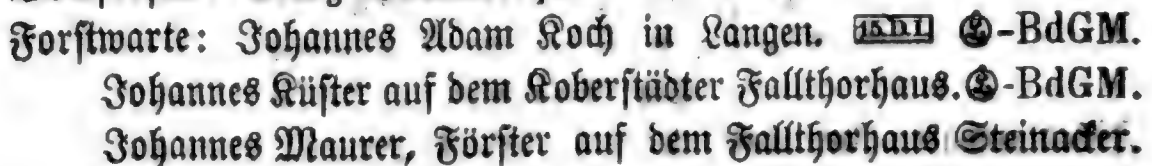 Forstwarte: Johannes Adam Koch in Langen. 15.D.J. -BdGM.
Johannes Küster auf dem Koberstädter Fallthorhaus. -BdGM.
Johannes Maurer, Förster auf dem Fallthorhaus Steinacker.